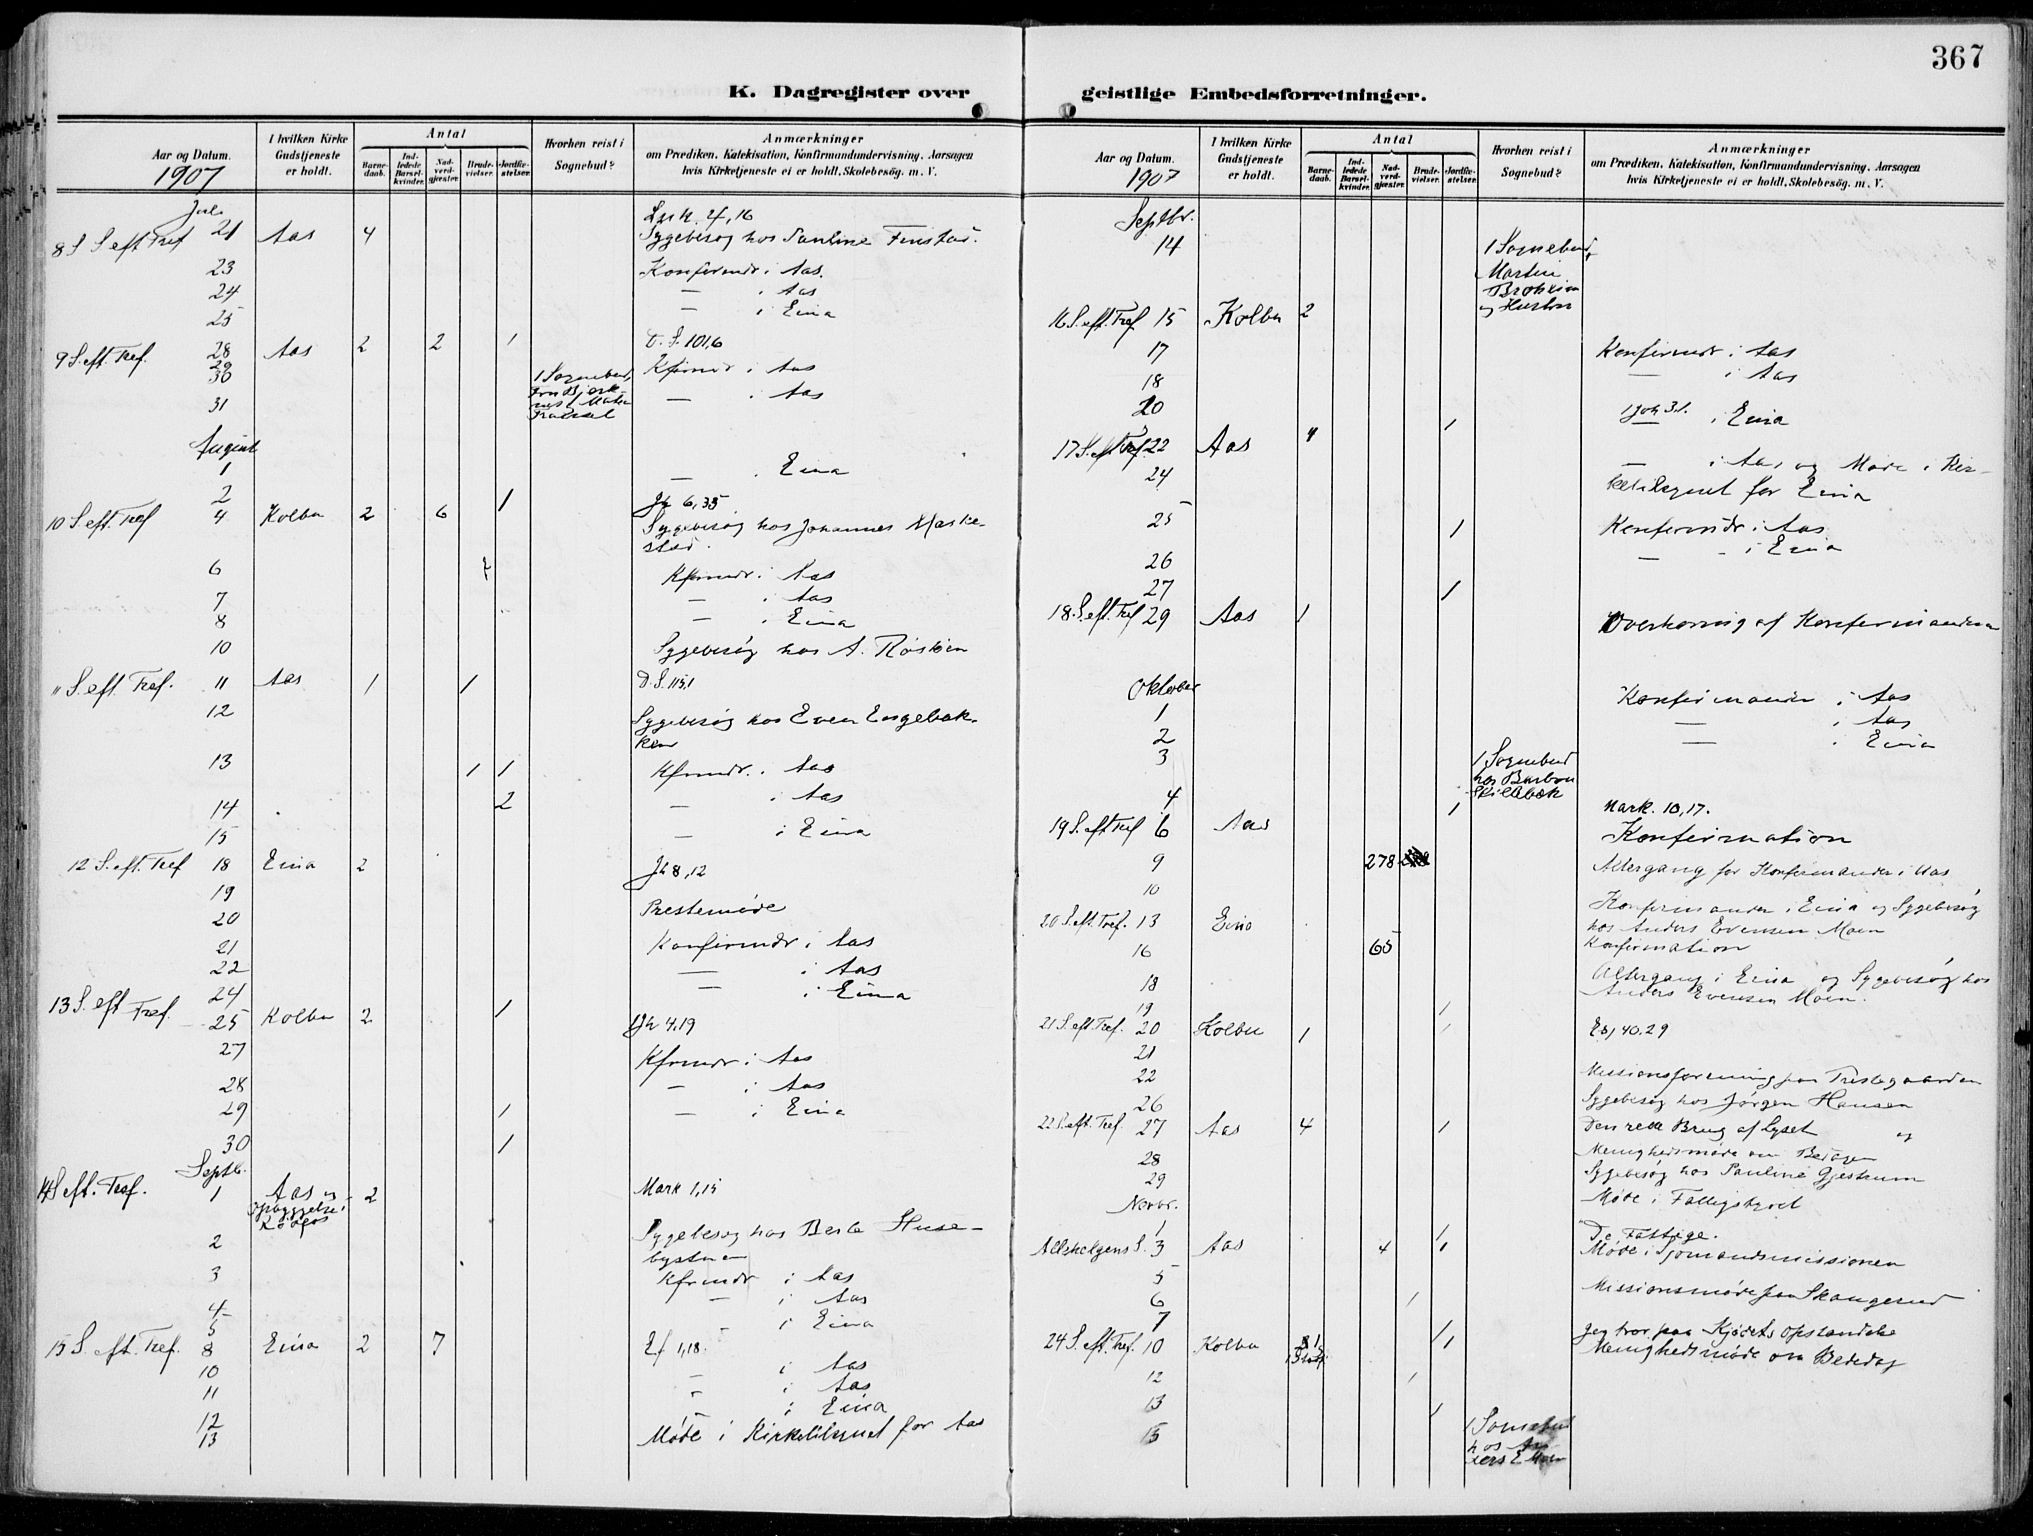 367
K. Dagregister over
geistlige Embedsforretninger.
Aar og Datum.
1907
I hvilken Kirke Gudstjeneste er holdt.
Antal
Barnedaab.
Indledede Barselkvinder.
Nadverdgjæster.
Brudevielser.
Jordfæstelser.
Hvorhen reist i Sognebud?
Anmærkninger
om Prædiken, Katekisation, Konfirmandundervisning, Aarsagen
hvis Kirketjeneste ei er holdt, Skolebesög. m. V.
Juli
8 S eft Tref 21 Aas 4
Sygebesøg hos Pauline
23 Konfirmdr i Aas.
24 — i Aas
25 — i Eina
9 S. eft. Tref. 28 Aas 2 2 1 D. S. 101,6
29
30 1 Sognebud, Kfirmdr i Aas
31 — i Aas
August
1 — Eina
2 1
10 S. eft Tref 4 Kolbu 2 6 Jh 6,35
Sygebesøg hos Johannes
6 2 Kfirmdr i Aas
7 — i Aas
8 — i Eina
10 Sygebesøg hos A.
11 S. eft. Tref. 11 Aas 1 1 D. S. 115,1
12 Sygebesøg hos Even Engebakken
13 1 1 Kfrmdr. i Aas
14 2 — i Aas
15 — i Eina
12 S. eft. Tref 18 Eina 2 Jh 8,12
19
20 Prestemøde
21 Konfirmdr i Aas
22 — i Aas
24 — i Eina
13 S. eft Tref. 25 Kolbu 2 1 Jh 4,19
27 Kfrmdr i Aas
28 — i Aas
29 1 — i Eina
30 1
Septb.
14 S eft. Tref. 1 Aas og 2 Mark 1,15
2 Sygebesøg hos
3 Kfrmdr i Aas
4 — i Aas
5 — i Eina
15 S. eft. Tref. 8 Eina 2 7 Ef 1,18
10 — i Aas
11 — i Aas
12 — i Eina
13 Møde i Kirketilsynet for Aas
Aar og Datum.
1907
I hvilken Kirke Gudstjeneste er holdt.
Antal
Barnedaab.
Indledede Barselkvinder.
Nadverdgjæster.
Brudevielser.
Jordfæstelser.
Hvorhen reist i Sognebud?
Anmærkninger
om Prædiken, Katekisation, Konfirmandundervisning, Aarsagen
hvis Kirketjeneste ei er holdt, Skolebesög. m. V.
Septbr.
14 1 Sognebud,
16 S. eft. Tref 15 Kolbu 2
17 Konfirmdr i Aas
18 — i Aas
20 1 — i Eina
17 S. eft Tref. 22 Aas 4
24 — i Aas og Møde i Kirketilsynet for Eina
25 1 Konfirmdr i Aas
26 — i Eina
27 1
18. S. eft. Tref 29 Aas 1 Overhøring af Konfirmanderne
Oktober
1 Konfirmander i Aas
2 — i Aas
3 1 Sognebud hos — i Eina
4 1 Mark. 10,17.
19 S. eft Tref 6 Aas Konfirmation
9 278 Altergang for Konfirmander i Aas
10 Konfirmander i Eina og Sygebesøg
hos Anders Evensen Moen
20 S. eft. Tref. 13 Eina Konfirmation
16 65 Altergang i Eina og Sygebesøg hos
18 Anders Evensen Moen.
19 1
21 S. eft. Tref. 20 Kolbu 1 1 Es, 40.29
21
22 Missionsforening paa Prestegaarden
26 Sygebesøg hos Jørgen Hansen
22 S. eft. Tref. 27 Aas 4 1 Den rette Brug af Lyset og
28 Menighedsmøde om Bededagen
29 Sygebesøg hos Pauline Gjestrum
Møde i Fattigstyret
Novbr.
1 1 De Fattige.
Allehelgens S. 3 Aas 4 1 Møde i Sjømandsmissionen
5
6 1 Missionsmøde paa Skaugerud
7 1 Jeg tror paa Kjødets Opstandelse
24 S. eft. Tref. 10 Kolbu 1 Menighedsmøde om Bededag
12 1
13 1
15 1 Sognebud
hos Anders E Moen